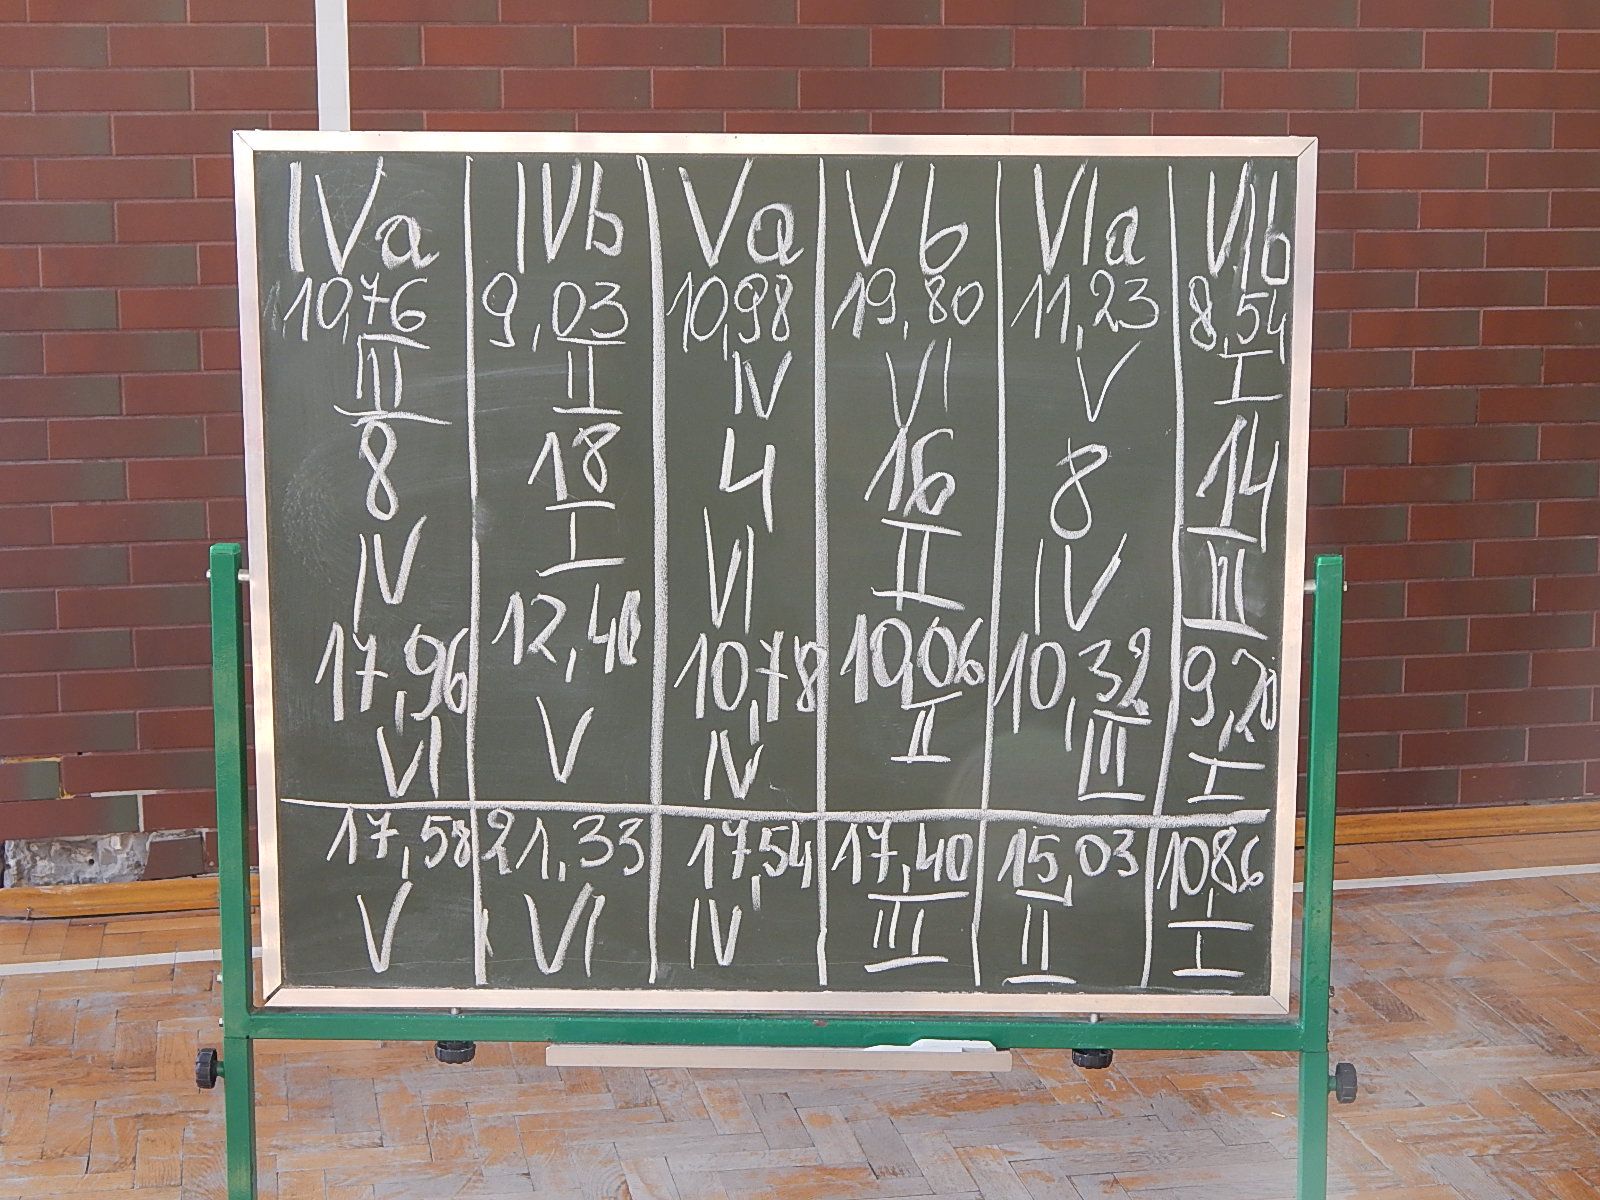 IVa IVb Va Vb VIa VIb
10,76 9,03 10,98 19,80 11,23 8,54
III II IV VI V I
8 18 4 16 8 14
IV I VI II IV III
17,96 12,40 10,78 10,06 10,32 9,20
VI V IV II III I
17,58 21,33 17,54 17,40 15,03 10,86
V VI IV III II I